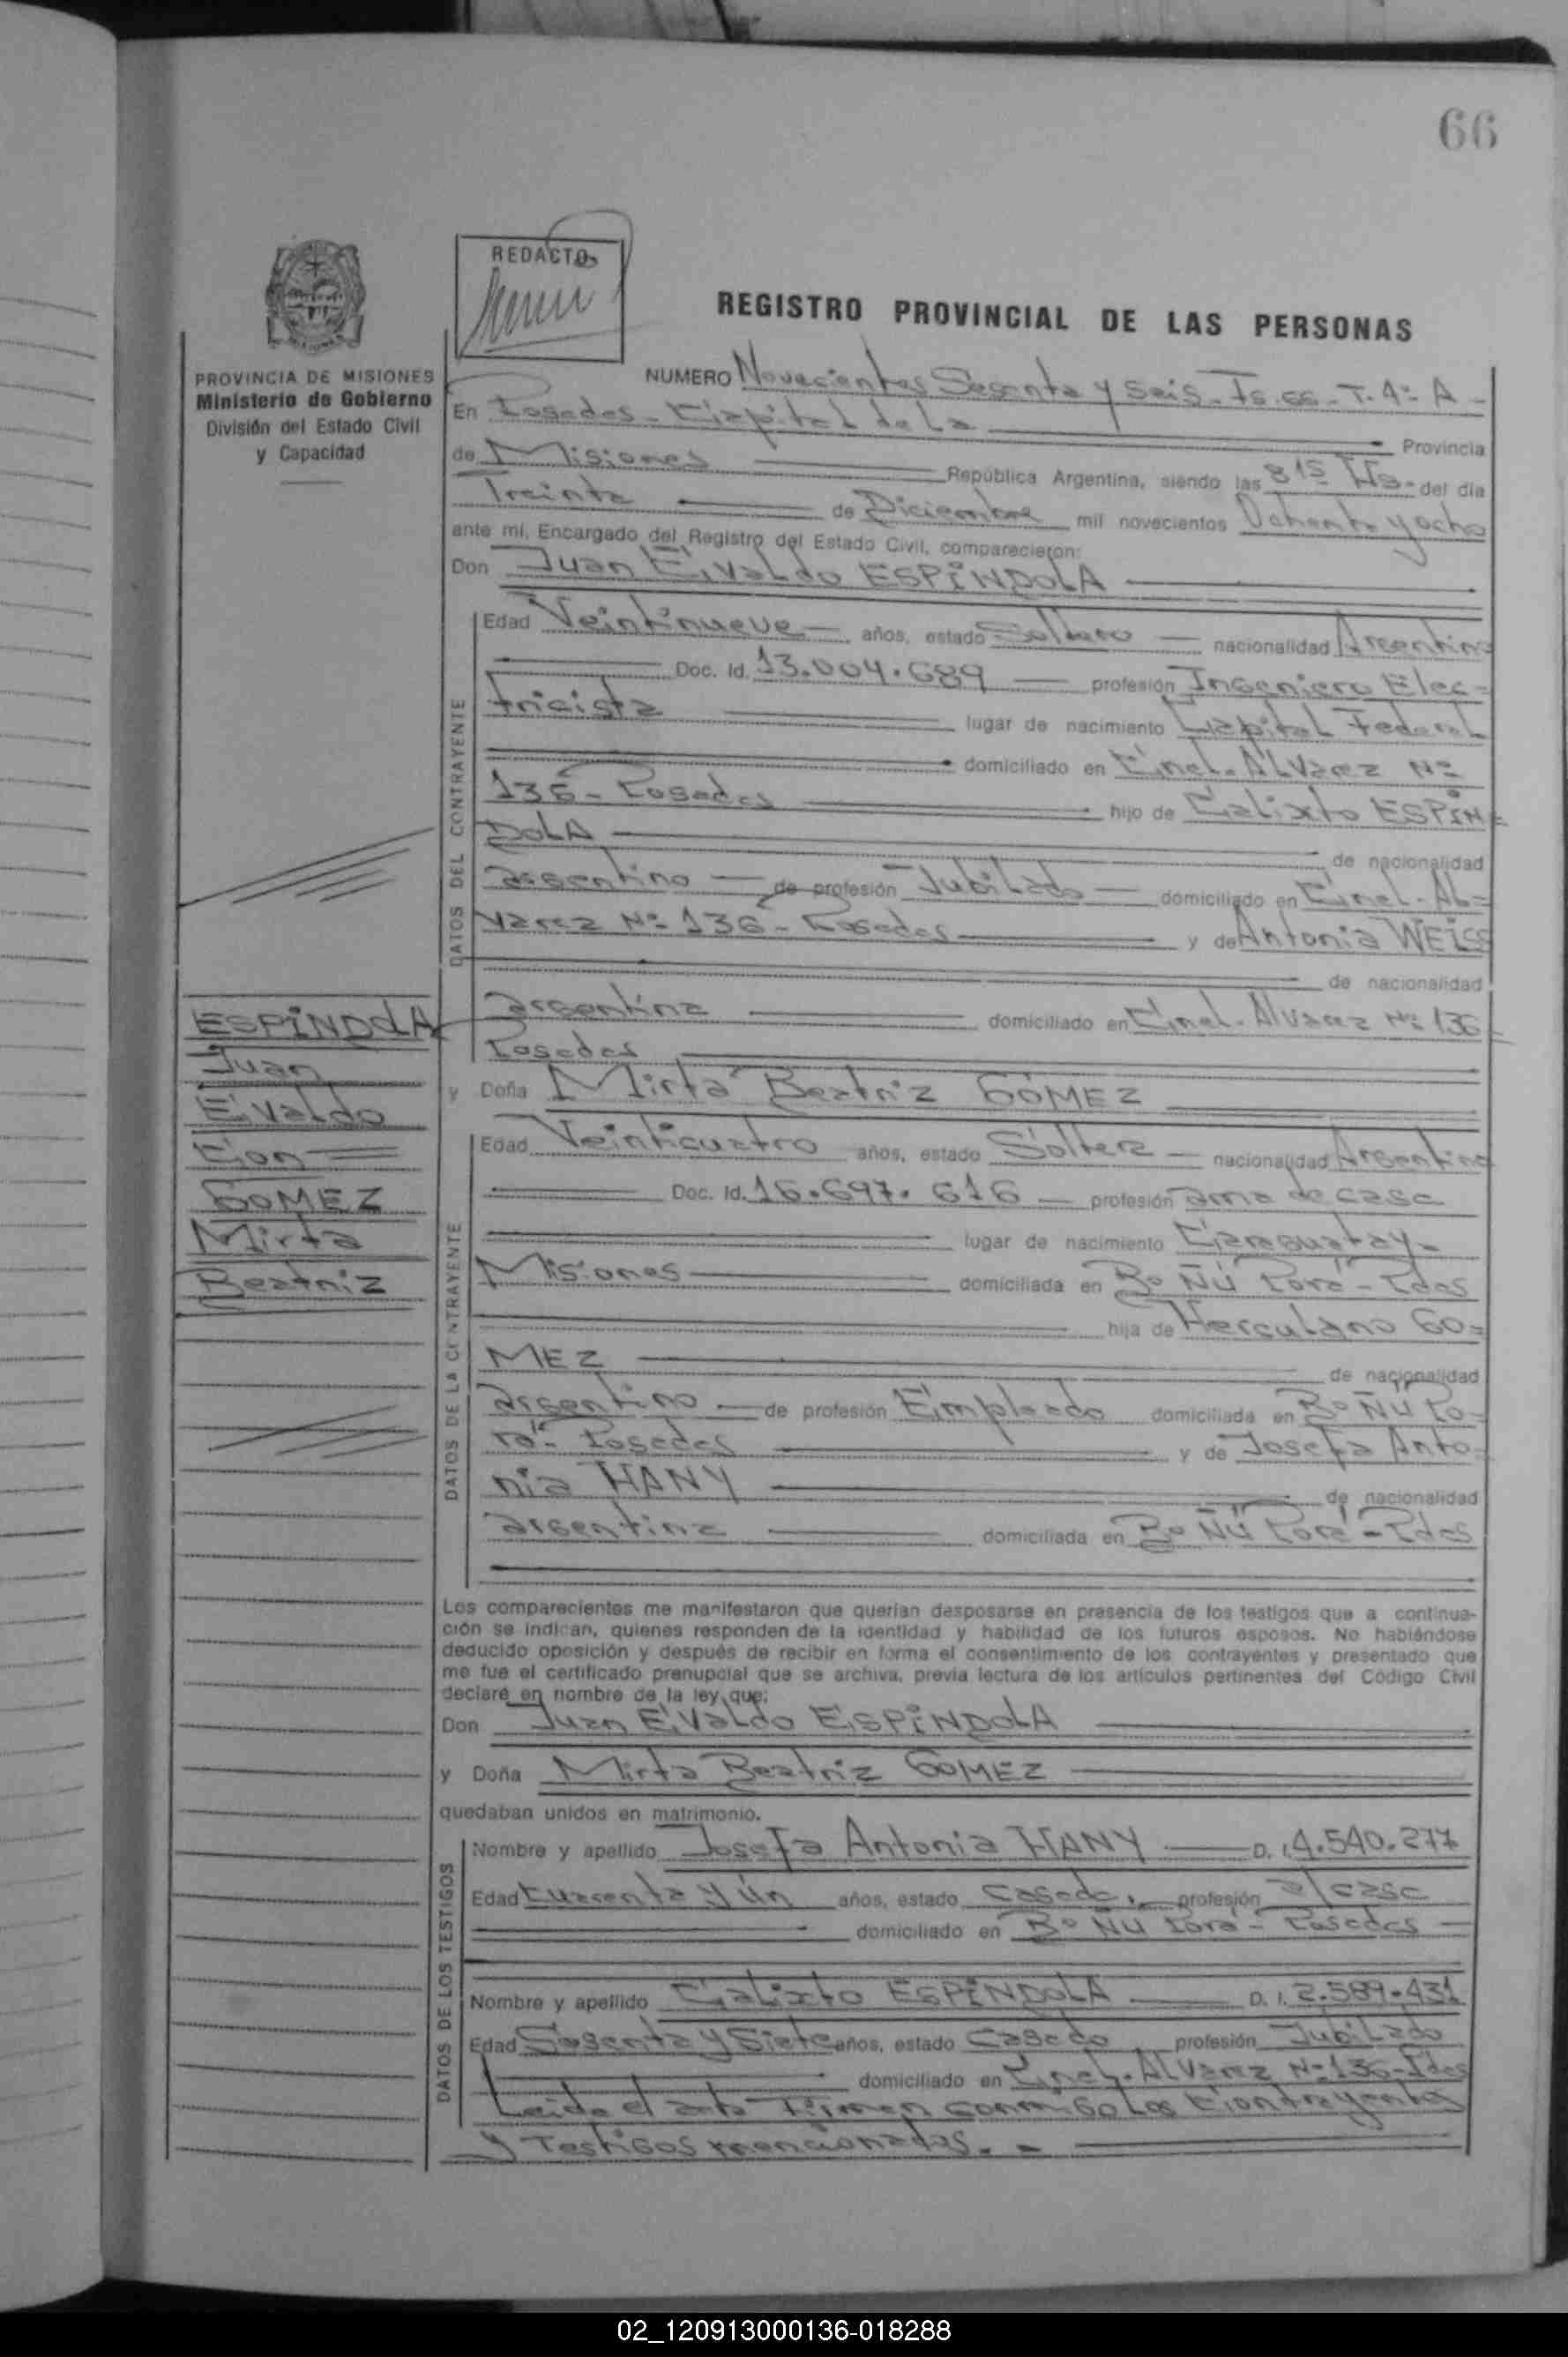 66
REDACTO
REGISTRO PROVINCIAL DE LAS PERSONAS
PROVINCIA DE MISIONES
Ministerio de Gobierno
División del Estado Civil
y Capacidad
NUMERO Novecientos Sesenta y Seis - Fs. 66 - T. 4º - A -
En Posadas - Capital de la Provincia
de Misiones República Argentina, siendo las 8 15 Hs. del día
Treinta de Diciembre mil novecientos Ochenta y ocho
ante mi, Encargado del Registro del Estado Civil, comparecieron:
Don Juan Evaldo ESPINDOLA
DATOS DEL CONTRAYENTE
Edad Veintinueve años, estado Soltero nacionalidad Argentino
Doc. Id. 13.004.689 profesión Ingeniero Elec=
tricista lugar de nacimiento Capital Federal
domiciliado en Cnel. Alvarez Nº
136 - Posadas hijo de Calixto ESPIN=
DOLA de nacionalidad
argentino de profesión Jubilado domiciliado en Cnel. Al=
varez Nº 136 - Posadas y de Antonia WEISS
de nacionalidad
argentina domiciliado en Cnel. Alvarez Nº 136
Posadas
y Doña Mirta Beatriz GOMEZ
DATOS DE LA CONTRAYENTE
Edad Veinticuatro años, estado Soltera nacionalidad Argentina
Doc. Id. 16.697.616 profesión ama de casa
lugar de nacimiento Caraguatay -
Misiones domiciliada en Bº Ñú Porá - Pdas
hija de Herculano GO=
MEZ de nacionalidad
argentino de profesión Empleado domiciliada en Bº Ñú Po=
rá - Posadas y de Josefa Anto=
nia HANY de nacionalidad
argentina domiciliada en Bº Ñú Porá - Pdas
ESPINDOLA
Juan
Evaldo
Con
GOMEZ
Mirta
Beatriz
Los comparecientes me manifestaron que querían desposarse en presencia de los testigos que a continua-
ción se indican, quienes responden de la identidad y habilidad de los futuros esposos. No habiéndose
deducido oposición y después de recibir en forma el consentimiento de los contrayentes y presentado que
me fue el certificado prenupcial que se archiva, previa lectura de los artículos pertinentes del Código Civil
declaré en nombre de la ley que:
Don Juan Evaldo ESPINDOLA
y Doña Mirta Beatriz GOMEZ
quedaban unidos en matrimonio.
DATOS DE LOS TESTIGOS
Nombre y apellido Josefa Antonia HANY D. I. 4.540.277
Edad Cuarenta y ún años, estado Casada, profesión a/casa
domiciliado en Bº Ñu Porá - Posadas
Nombre y apellido Calixto ESPINDOLA D. I. 2.589.431
Edad Sesenta y Siete años, estado Casado profesión Jubilado
domiciliado en Cnel. Alvarez Nº 136 - Pdas
Leida el acta Firman conmigo Los Contrayentes
y Testigos mencionados. -
02_120913000136-018288